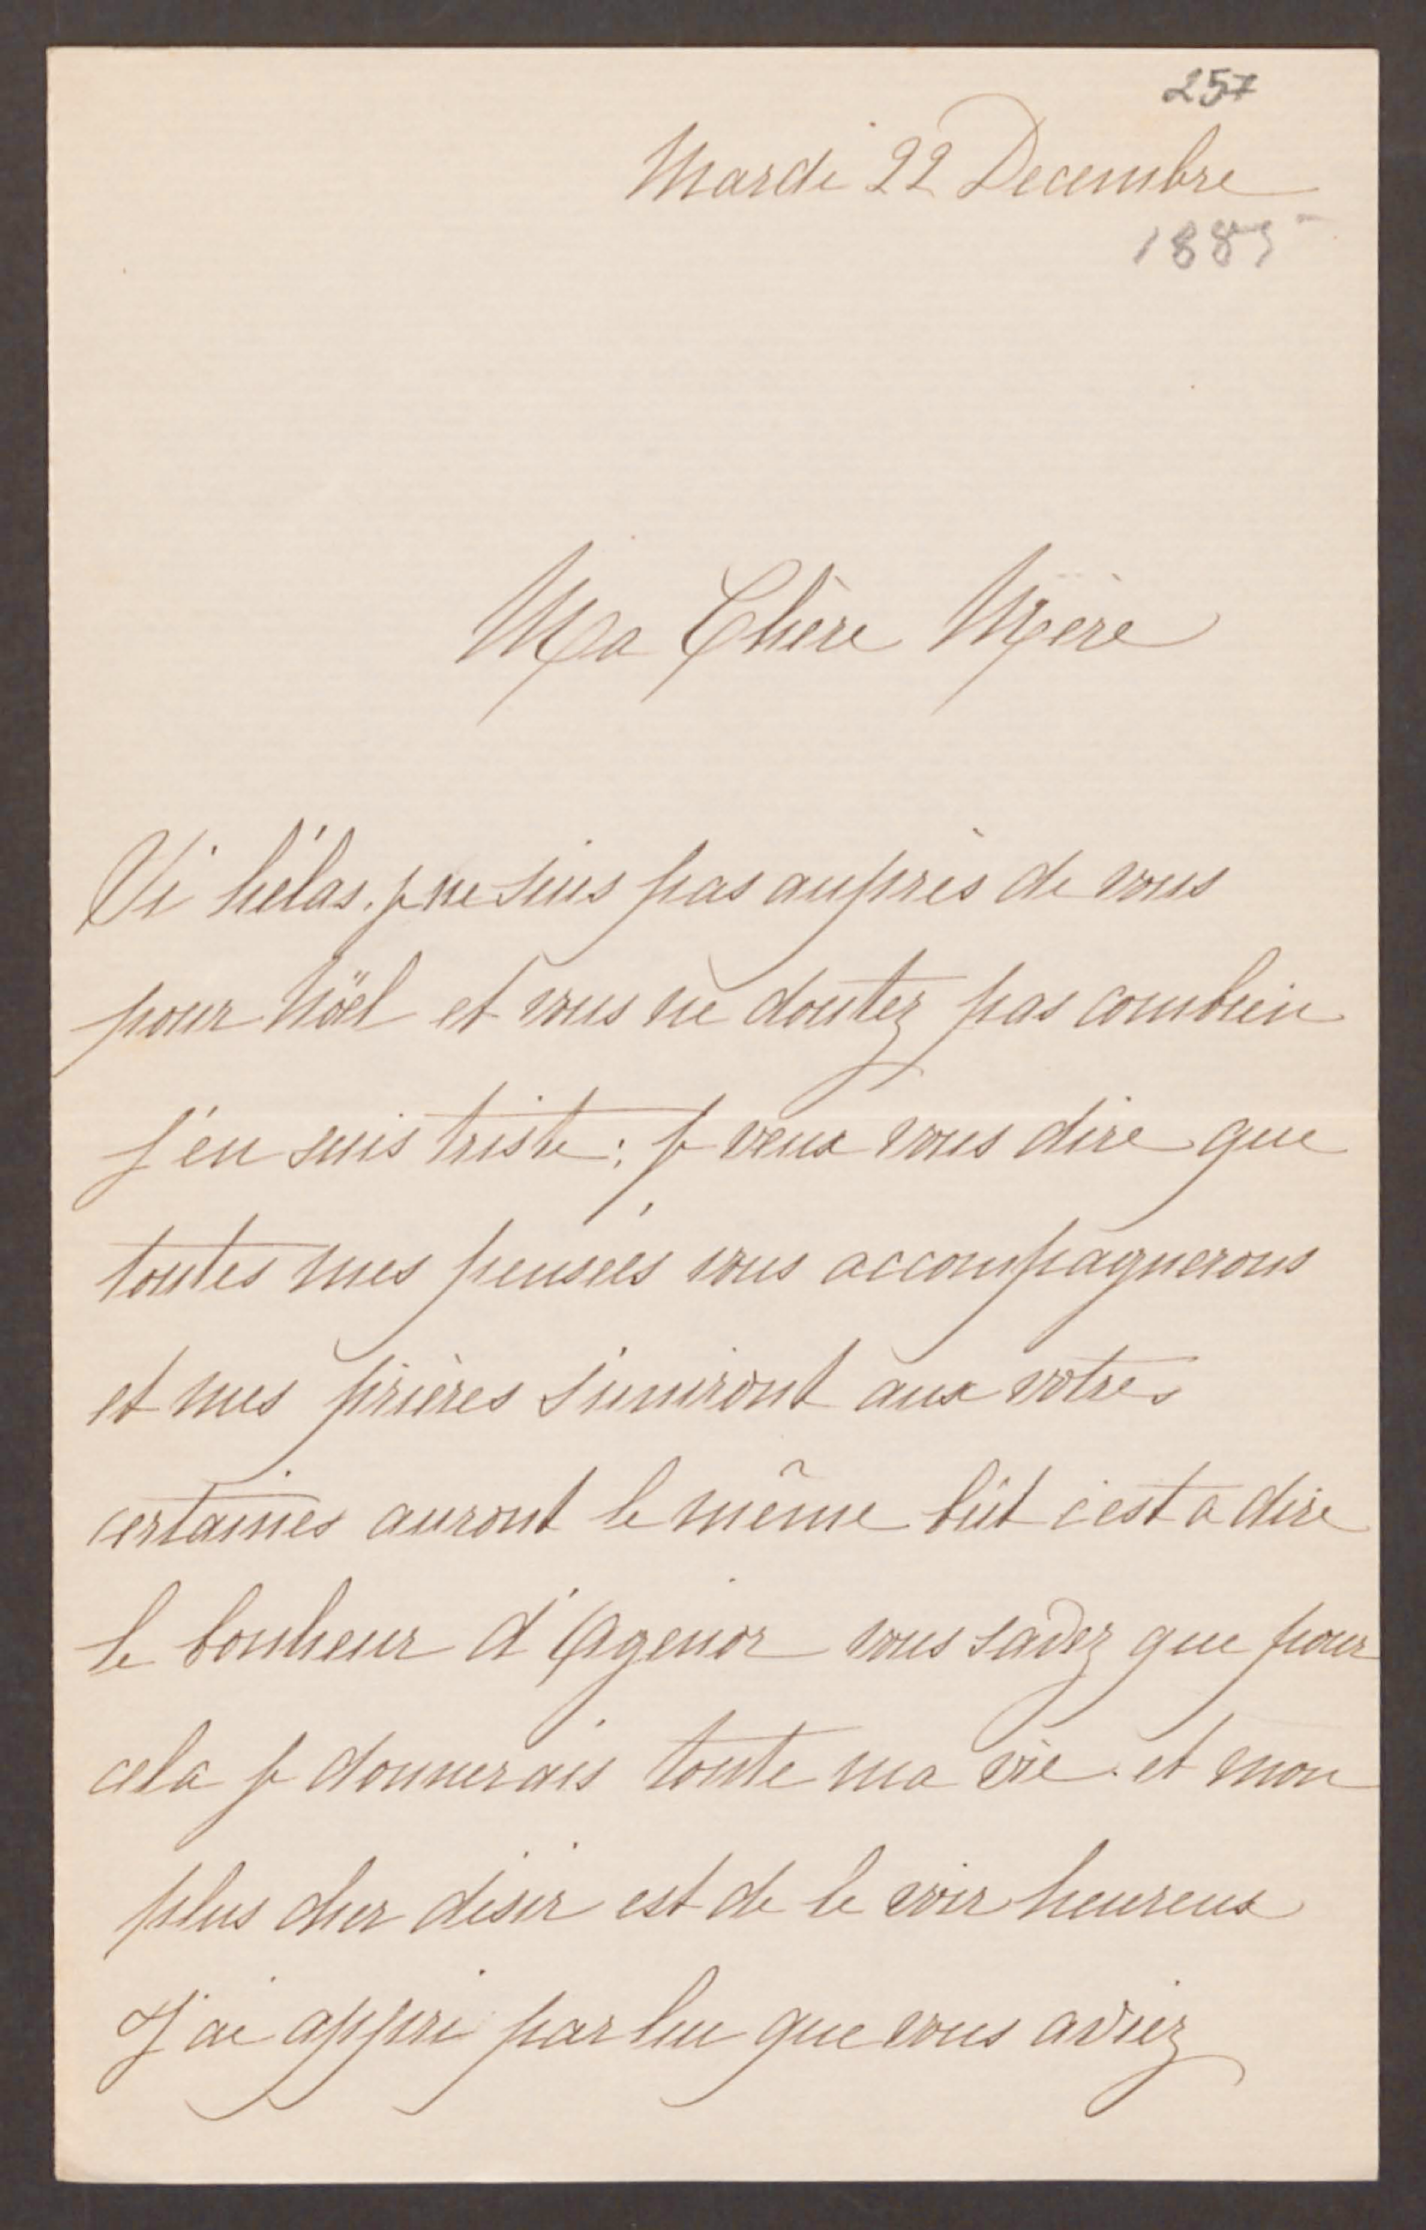 257
Mardi 22 Decembre
1885
Ma Chère Mère
Si hélas. je ne suis pas auprès de vous
pour Nöel et vous ne doutez pas combien
j'en suis triste : je veux vous dire que
toutes mes pensées vous accompagnerons
et mes prières s'uniront aux votres
certaines auront le même bût c'est a dire
le bonheur d'Agenor vous savez que pour
cela je donnerais toute ma vie. et mon
plus cher désir est de le voir heureux
J'ai appri par lui que vous aviez